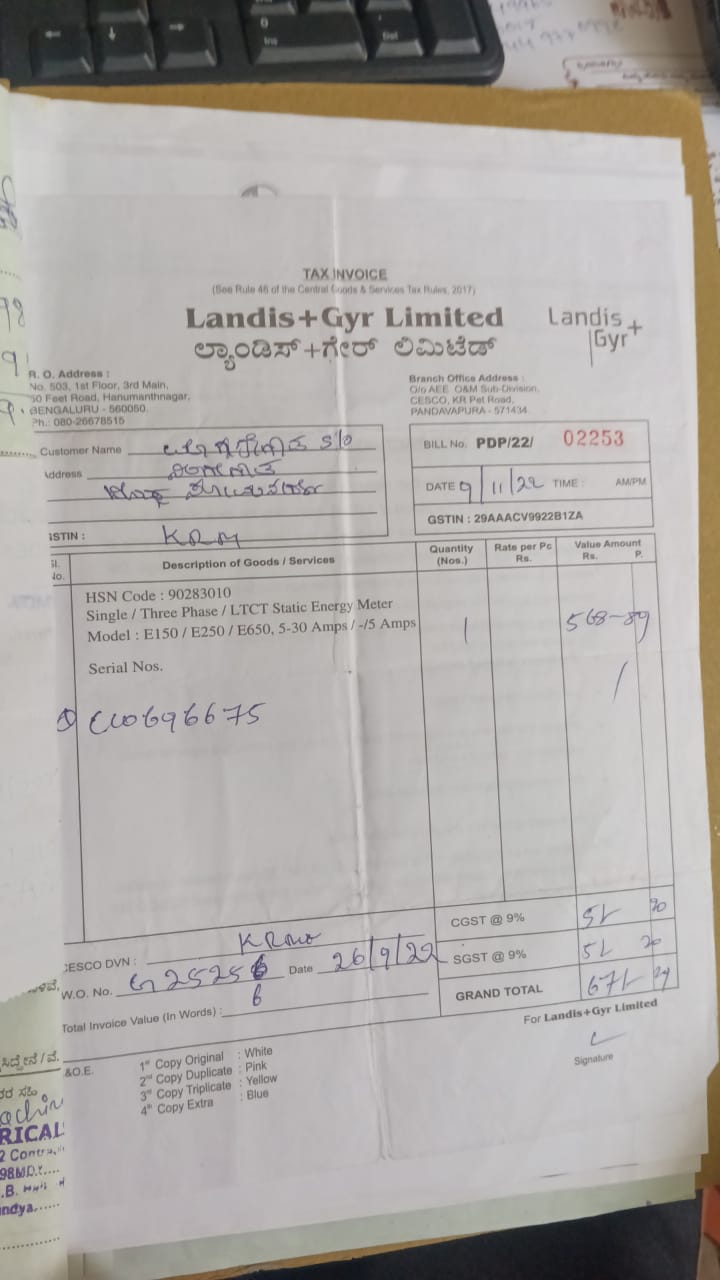 TAX INVOICE
(See Rule 46 of the Central Goods & Services Tax Rules, 2017)
Landis+Gyr Limited
ಲ್ಯಾಂಡಿಸ್+ಗೇರ್ ಲಿಮಿಟೆಡ್
Landis+
Gyr
R. O. Address :
No. 503, 1st Floor, 3rd Main,
50 Feet Road, Hanumanthnagar,
BENGALURU - 560050.
Ph.: 080-26678515
Branch Office Address :
O/o AEE O&M Sub-Division,
CESCO, KR Pet Road,
PANDAVAPURA - 571434.
Customer Name S/o
Address
GSTIN : KRM
BILL No. PDP/22/ 02253
DATE 9/11/22 TIME : AM/PM
GSTIN : 29AAACV9922B1ZA
Sl. No. Description of Goods / Services Quantity (Nos.) Rate per Pc Rs. Value Amount Rs. P.
HSN Code : 90283010
Single / Three Phase / LTCT Static Energy Meter
Model : E150 / E250 / E650, 5-30 Amps / -/5 Amps 1 568-89
Serial Nos.
696675
CGST @ 9% 51 20
SGST @ 9% 51 20
GRAND TOTAL 671 29
CESCO DVN :
W.O. No. Date 26/9/22
Total Invoice Value (In Words) :
For Landis+Gyr Limited
Signature
&O.E.
1st Copy Original : White
2nd Copy Duplicate : Pink
3rd Copy Triplicate : Yellow
4th Copy Extra : Blue
RICAL
98M.D.Y....